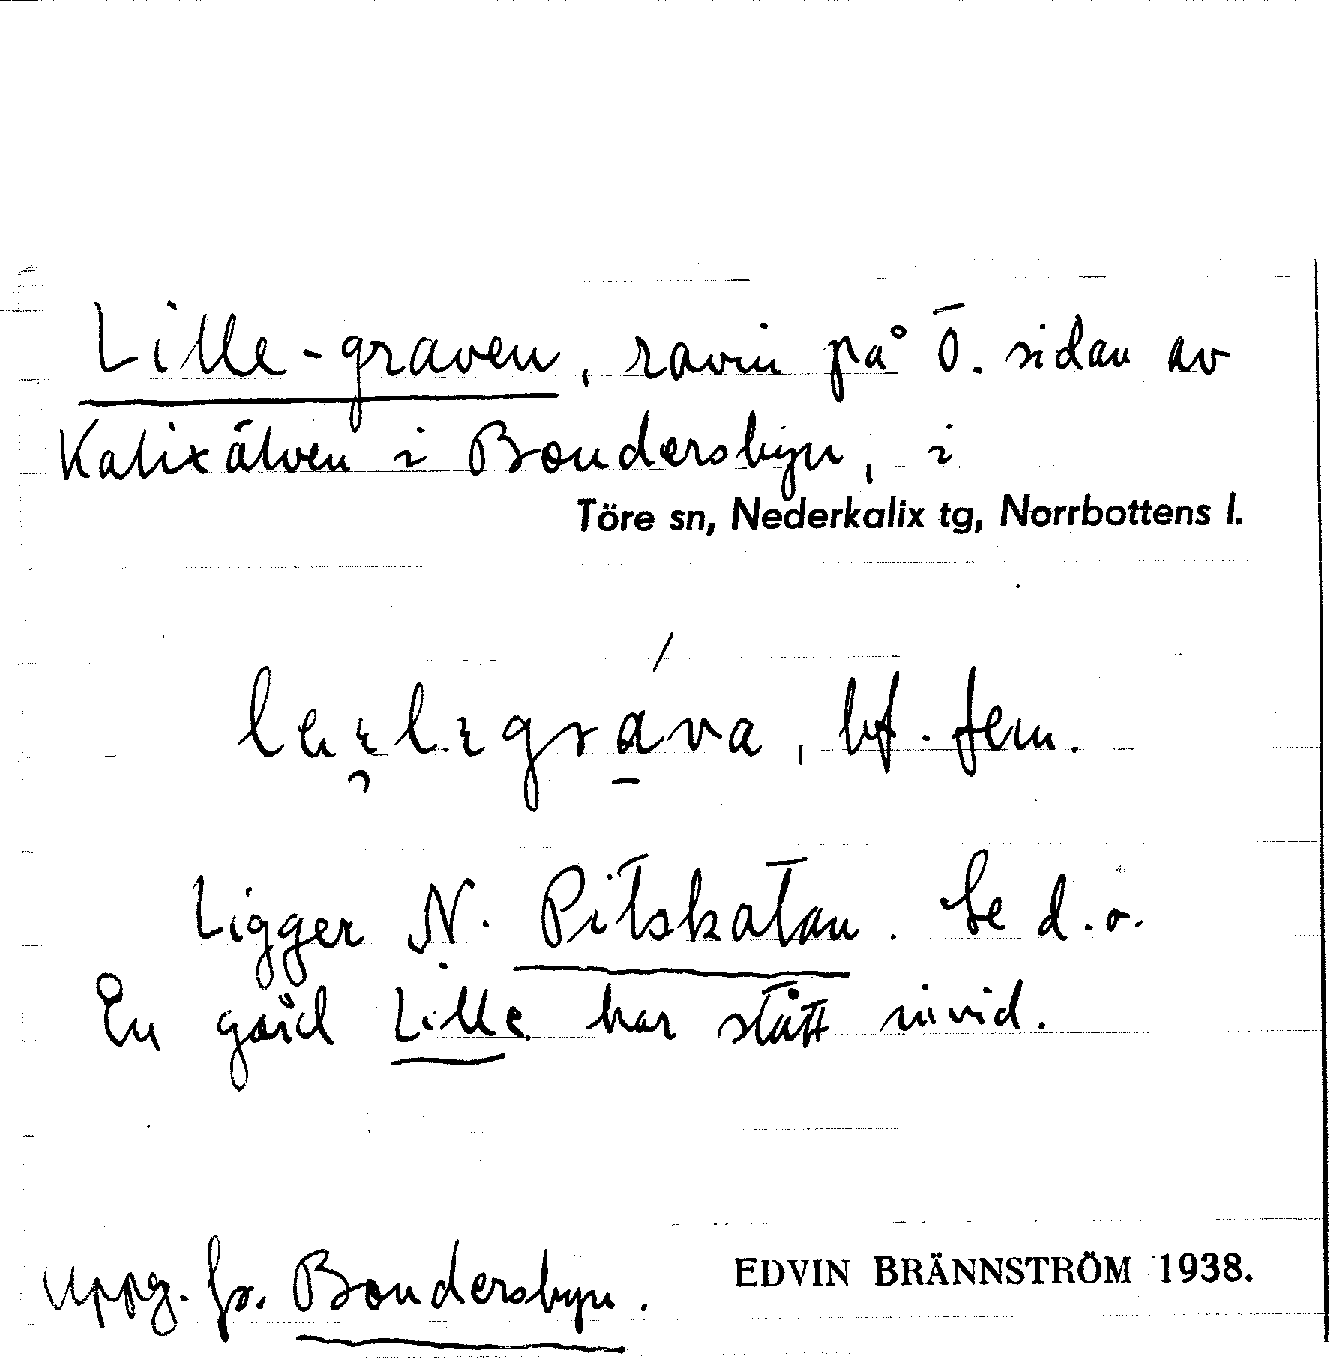 Lille-graven, ravin på Ö. sidan av
Kalixälven i Bondersbyn, i
Töre sn, Nederkalix tg, Norrbottens l.
bf. fem.
Ligger N. Pitskatan. Se d. o.
En gård Lille har stått invid.
Uppg. fr. Bondersbyn.
EDVIN BRÄNNSTRÖM 1938.